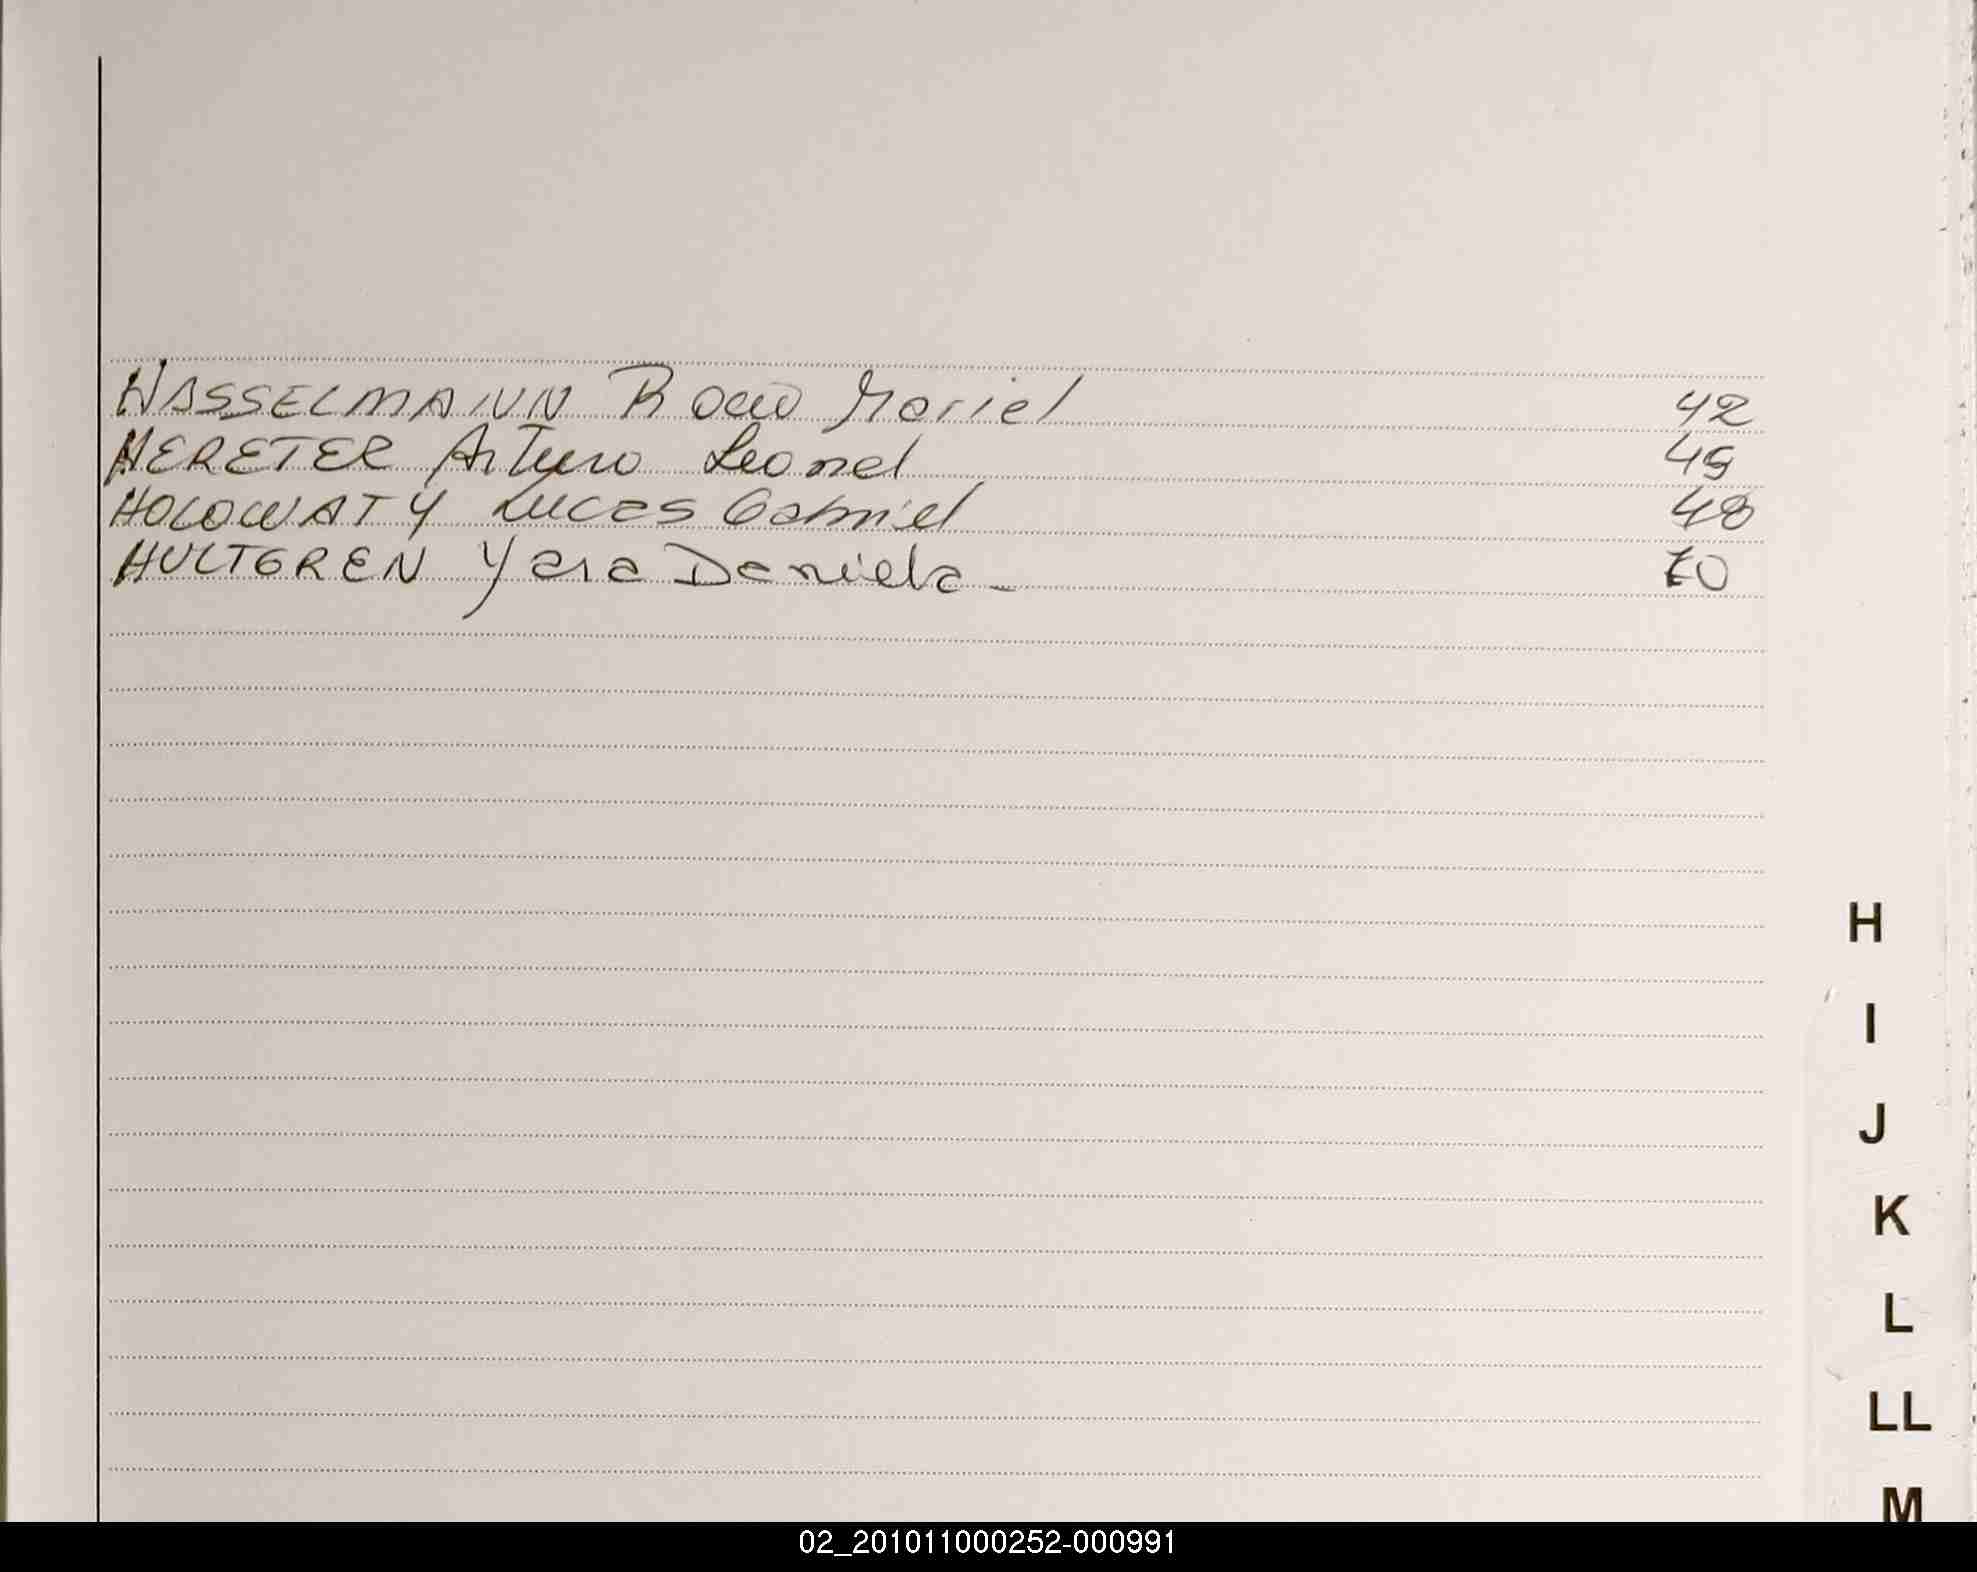 HASSELMANN Rocio Mariel 42
HERETER Arturo Leonel 49
HOLOWATY Lucas Gabriel 48
HULTGREN Yara Daniela - 70
H
I
J
K
L
LL
M
02_201011000252-000991